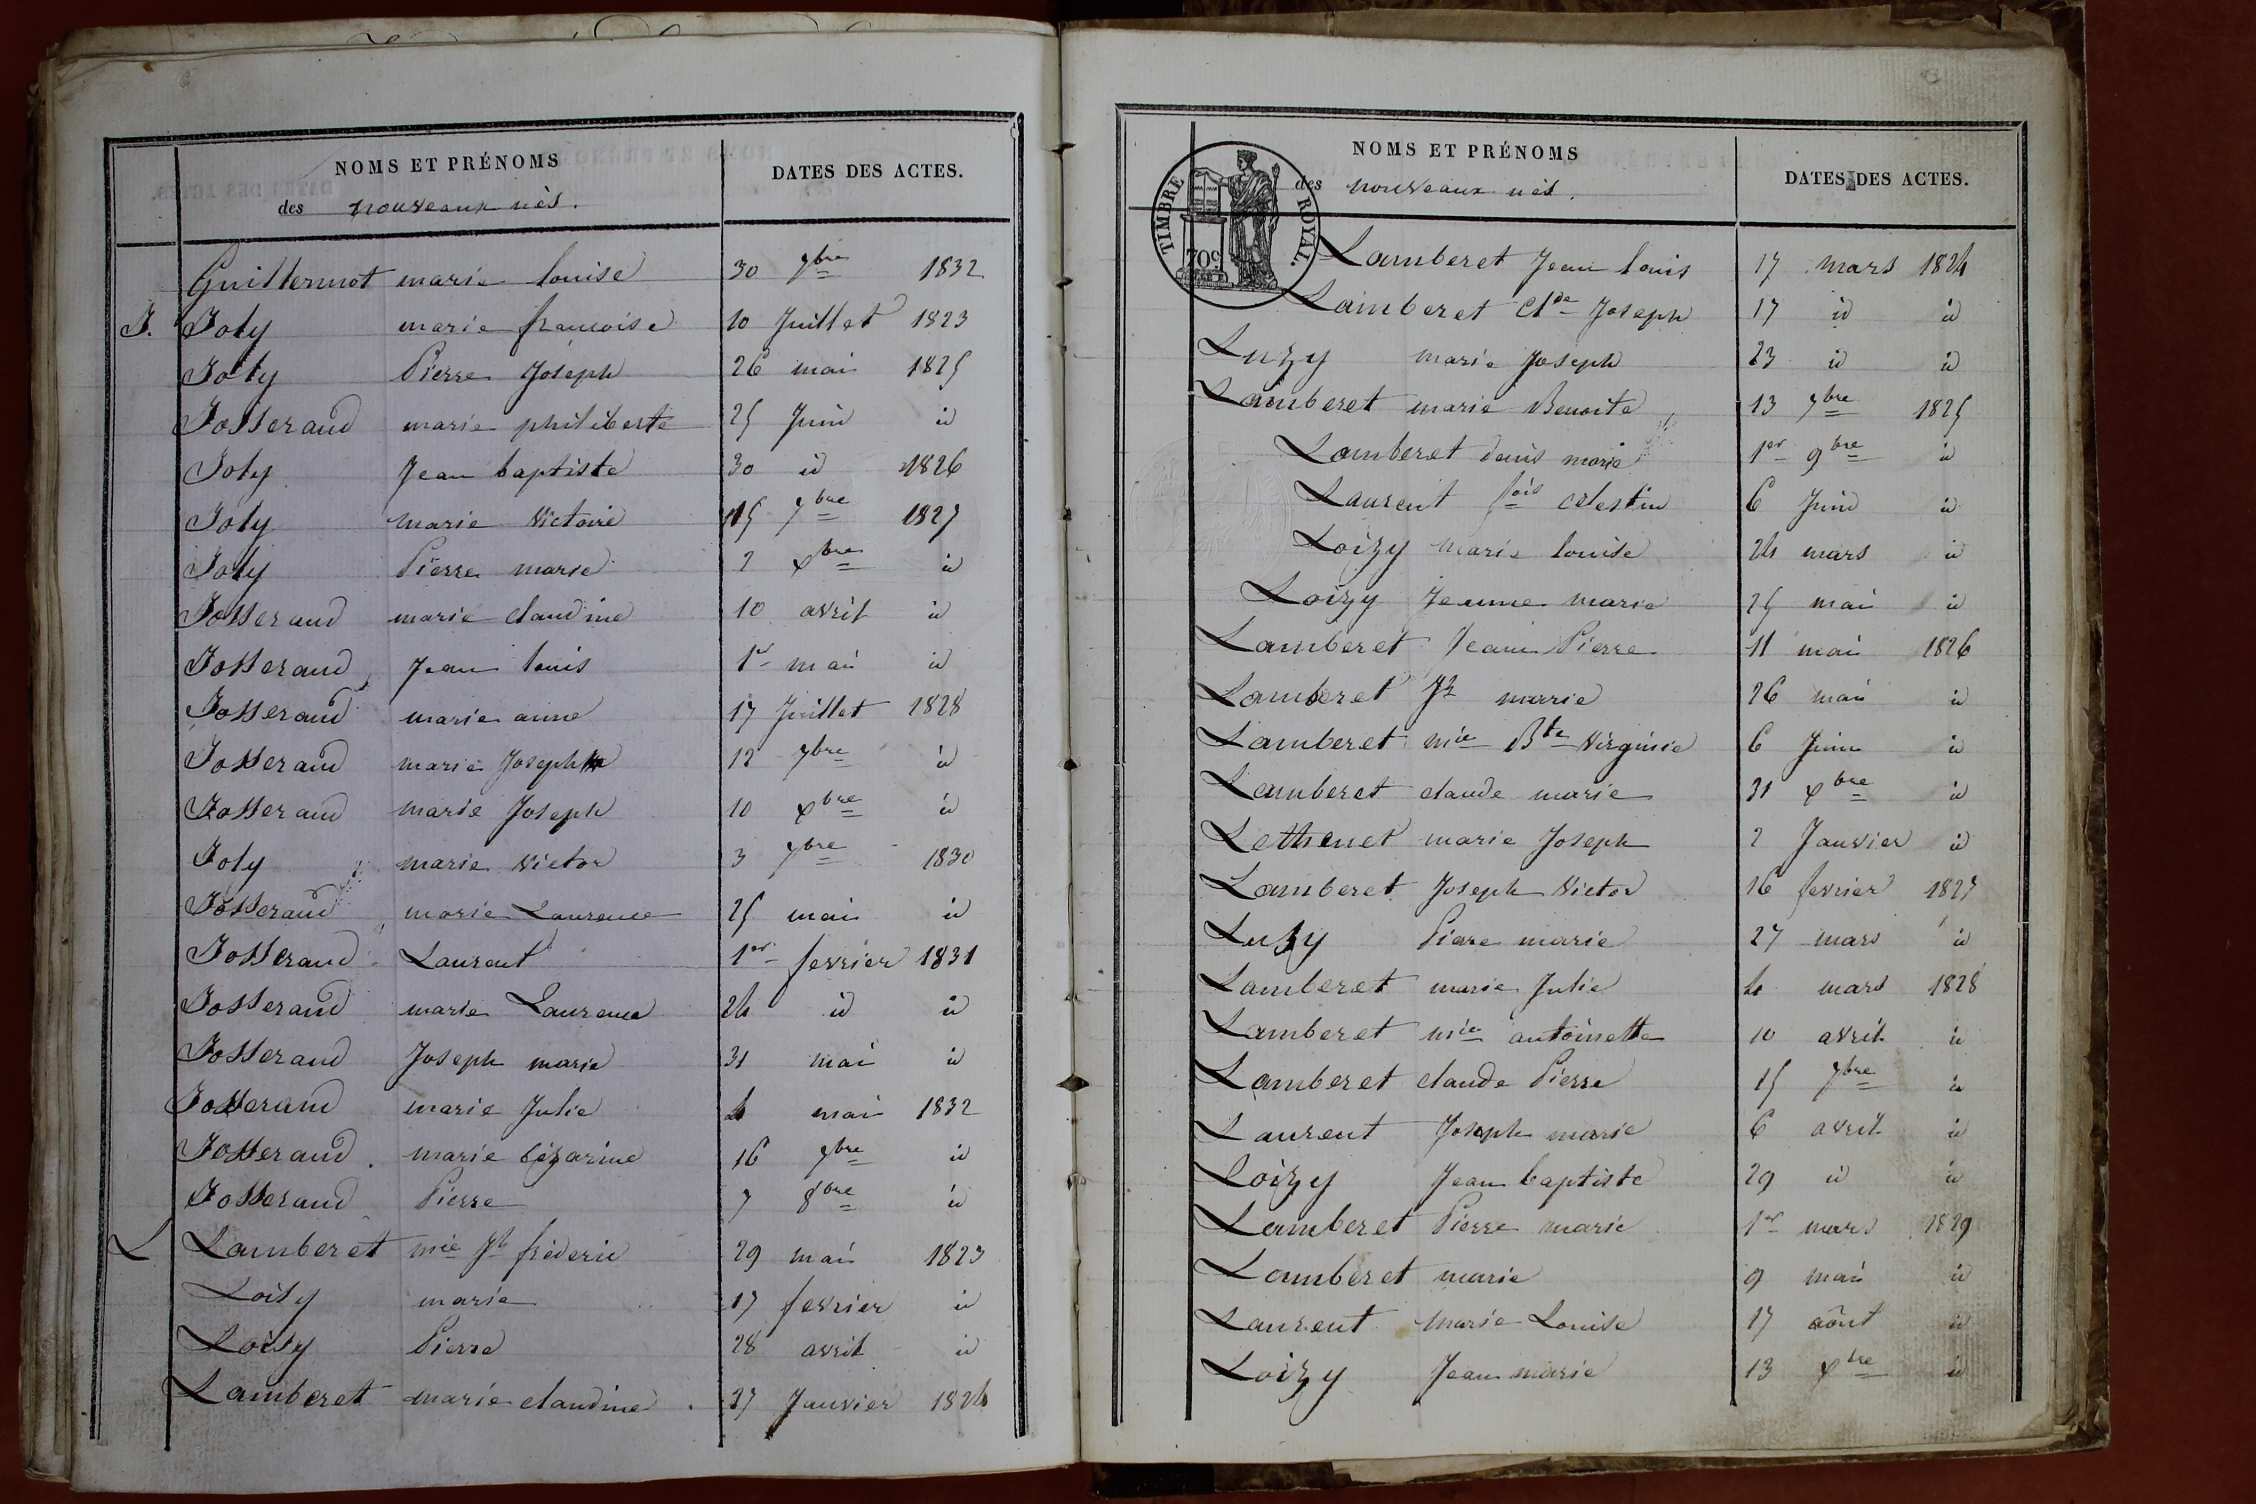 NOMS ET PRÉNOMS
des nouveaux nés.
DATES DES ACTES.
Guillermot marie louise 30 7bre 1832
J. Joly marie francoise 10 Juillet 1823
Joly Pierre Joseph 26 mai 1825
Josserand marie philiberte 25 Juin id
Joly Jean baptiste 30 id 1826
Joly marie Victoire 15 7bre 1827
Joly Pierre marie 2 xbre id
Josserand marie claudine 10 avril id
Josserand Jean louis 1er mai id
Josserand marie anne 17 Juillet 1828
Josserand marie Joseph 12 7bre id
Josserand marie Joseph 10 xbre id
Joly marie Victor 3 7bre 1830
Josserand marie Laurence 25 mai id
Josserand Laurent 1er fevrier 1831
Josserand marie Laurence 24 id id
Josserand Joseph marie 31 mai id
Josserand marie Julie 4 mai 1832
Josserand marie Cézarine 16 7bre id
Josserand Pierre 7 8bre id
L Lamberet mie Jh fréderic 29 mai 1823
Loisy marie 17 fevrier id
Loisy Pierre 28 avril id
Lamberet marie claudine 27 Janvier 1824
TIMBRE ROYAL.
70c
NOMS ET PRÉNOMS
des nouveaux nés.
DATES DES ACTES.
Lamberet Jean louis 17 mars 1824
Lamberet Clde Joseph 17 id id
Luzy marie Joseph 23 id id
Lamberet marie Benoite 13 7bre 1825
Lamberet denis marie 1er 9bre id
Laurent fois celestin 6 Juin id
Loizy marie louise 24 mars id
Loizy Jeanne marie 25 mai id
Lamberet Jean Pierre 11 mai 1826
Lamberet Jh marie 26 mai id
Lamberet mie Bte Virginie 6 Juin id
Lamberet claude marie 31 xbre id
Lethenet marie Joseph 2 Janvier id
Lamberet Joseph Victor 16 fevrier 1827
Luzy Piere marie 27 mars id
Lamberet marie Julie 4 mars 1828
Lamberet mie antoinette 10 avril id
Lamberet claude Pierre 15 7bre id
Laurent Joseph marie 6 avril id
Loizy Jean baptiste 29 id id
Lamberet Pierre marie 1er mars 1829
Lamberet marie 9 mai id
Laurent Marie Louise 17 aôut id
Loizy Jean marie 13 xbre id